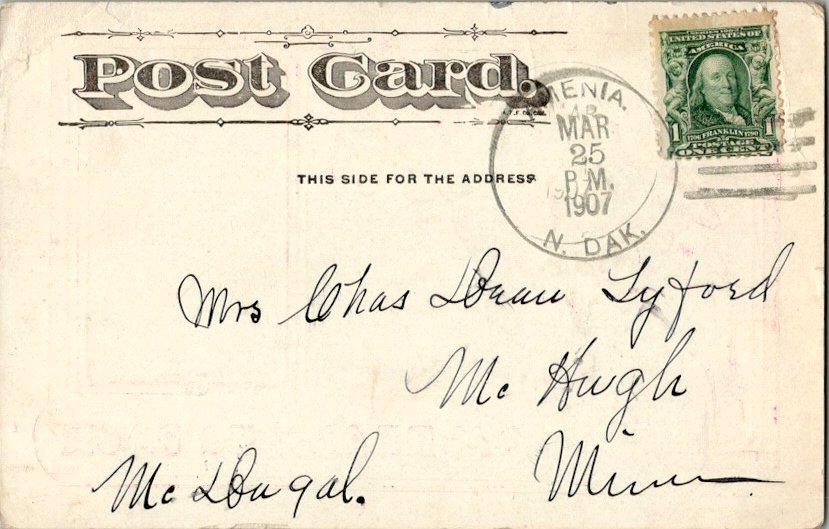 Post Card.
SERIES 1902
UNITED STATES OF
AMERICA
1 1706 FRANKLIN 1790 1
POSTAGE
ONE CENT
MENIA.
MAR
25
P.M.
1907
N. DAK.
THIS SIDE FOR THE ADDRESS
Mrs Chas Dean Lyford
Mc Hugh
Minn
McDougal.